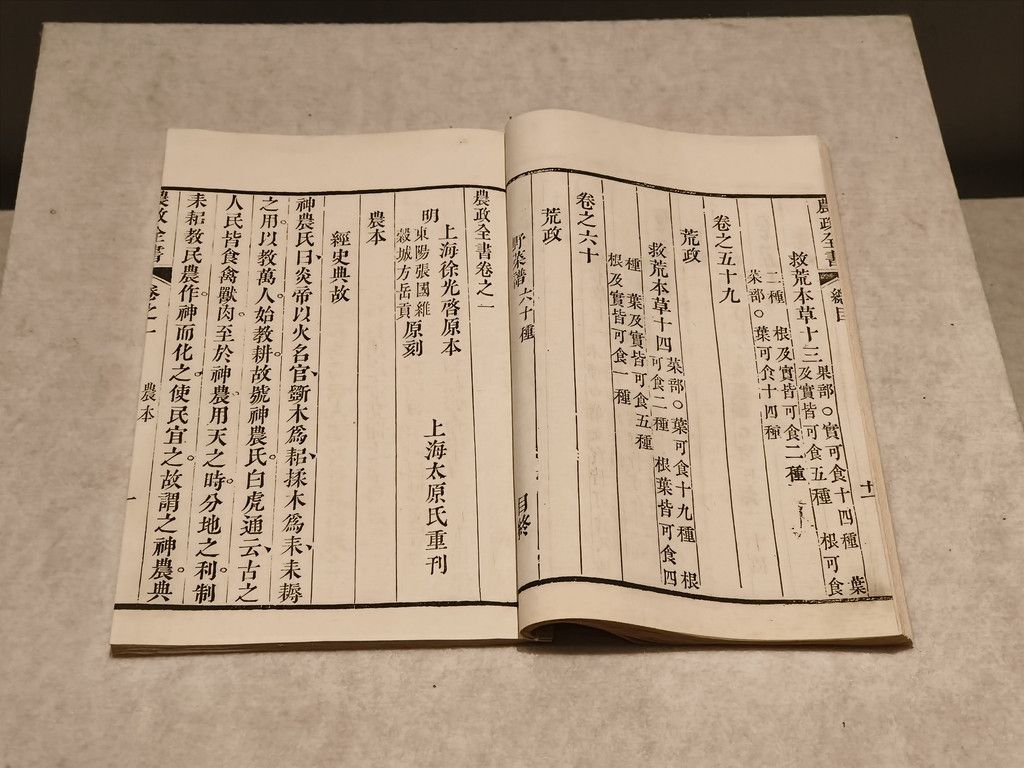 農政全書 總目 十一
救荒本草十三 果部○實可食十四種 葉
及實皆可食五種 根可食
二種 根及實皆可食二種
菜部○葉可食十四種
卷之五十九
荒政
救荒本草十四 菜部○葉可食十九種 根
可食二種 根葉皆可食四
種 葉及實皆可食五種
根及實皆可食一種
卷之六十
荒政
野菜譜六十種
目終
農政全書卷之一
上海徐光啓原本
明 東陽張國維
穀城方岳貢 原刻
上海太原氏重刊
農本
經史典故
神農氏曰炎帝、以火名官、斲木爲耜、揉木爲耒、耒耨
之用。以教萬人。始教耕。故號神農氏。白虎通云、古之
人民皆食禽獸肉。至於神農。用天之時。分地之利。制
耒耜。教民農作。神而化之。使民宜之。故謂之神農。典
農政全書 卷之一 農本 一